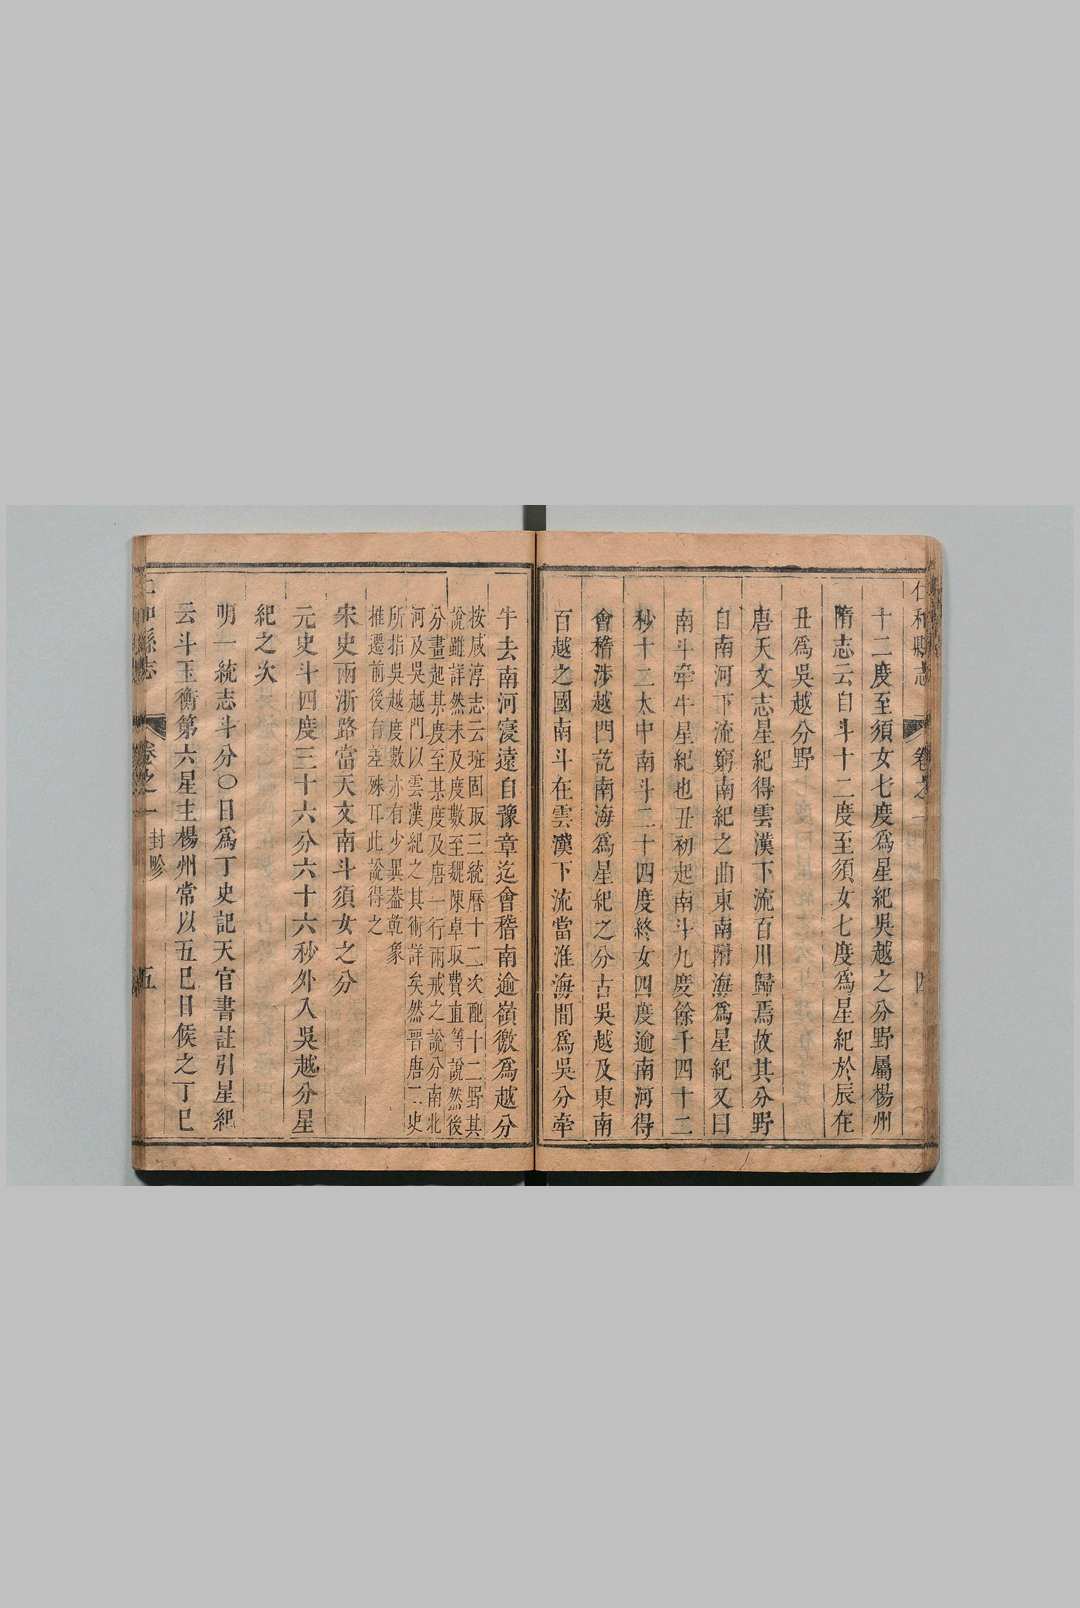 仁和縣志
卷之一
四
十二度至須女七度爲星紀吳越之分野屬楊州
隋志云自斗十二度至須女七度爲星紀於辰在
丑爲吳越分野
唐天文志星紀得雲漢下流百川歸焉故其分野
自南河下流窮南紀之曲東南附海爲星紀又曰
南斗牽牛星紀也丑初起南斗九度餘千四十二
秒十二太中南斗二十四度終女四度逾南河得
會稽涉越門訖南海爲星紀之分古吳越及東南
百越之國南斗在雲漢下流當淮海間爲吳分牽
牛去南河寖遠自豫章迄會稽南逾嶺徼爲越分
按咸淳志云班固取三統曆十二次配十二野其
說雖詳然未及度數至魏陳卓取費直等說然後
分畫起某度至某度及唐一行兩戒之說分南北
河及吳越門以雲漢紀之其術詳矣然晉唐二史
所指吳越度數亦有少異葢乾象
推遷前後有差殊耳此說得之
宋史兩浙路當天文南斗須女之分
元史斗四度三十六分六十六秒外入吳越分星
紀之次
明一統志斗分〇日爲丁史記天官書註引星紀
云斗玉衡第六星主楊州常以五巳日候之丁巳
仁和縣志
卷之一
封畛
五